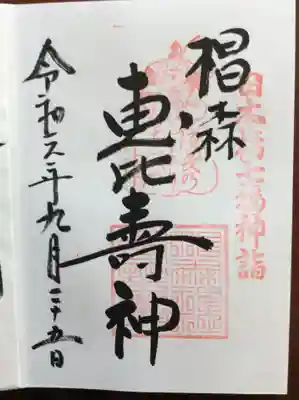 日本橋七福神詣
椙森
恵比壽神
令和六年九月二十五日